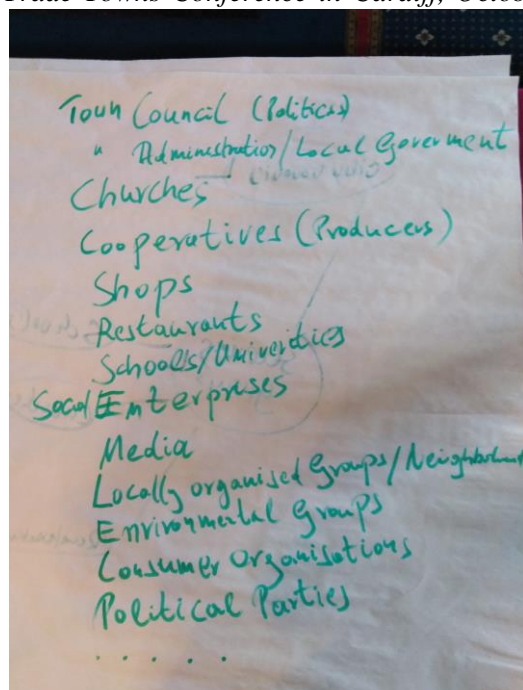 Trade Towns Conference in Cardiff, Octo
Town Council (Politics)
" Administration/Local Goverment
Churches
Cooperatives (Producers)
Shops
Restaurants
Schools/Univerities
Social Enterprises
Media
Locally organised Groups/Neighborhood
Environmental Groups
Consumer Organisations
Political Parties
. . . . .